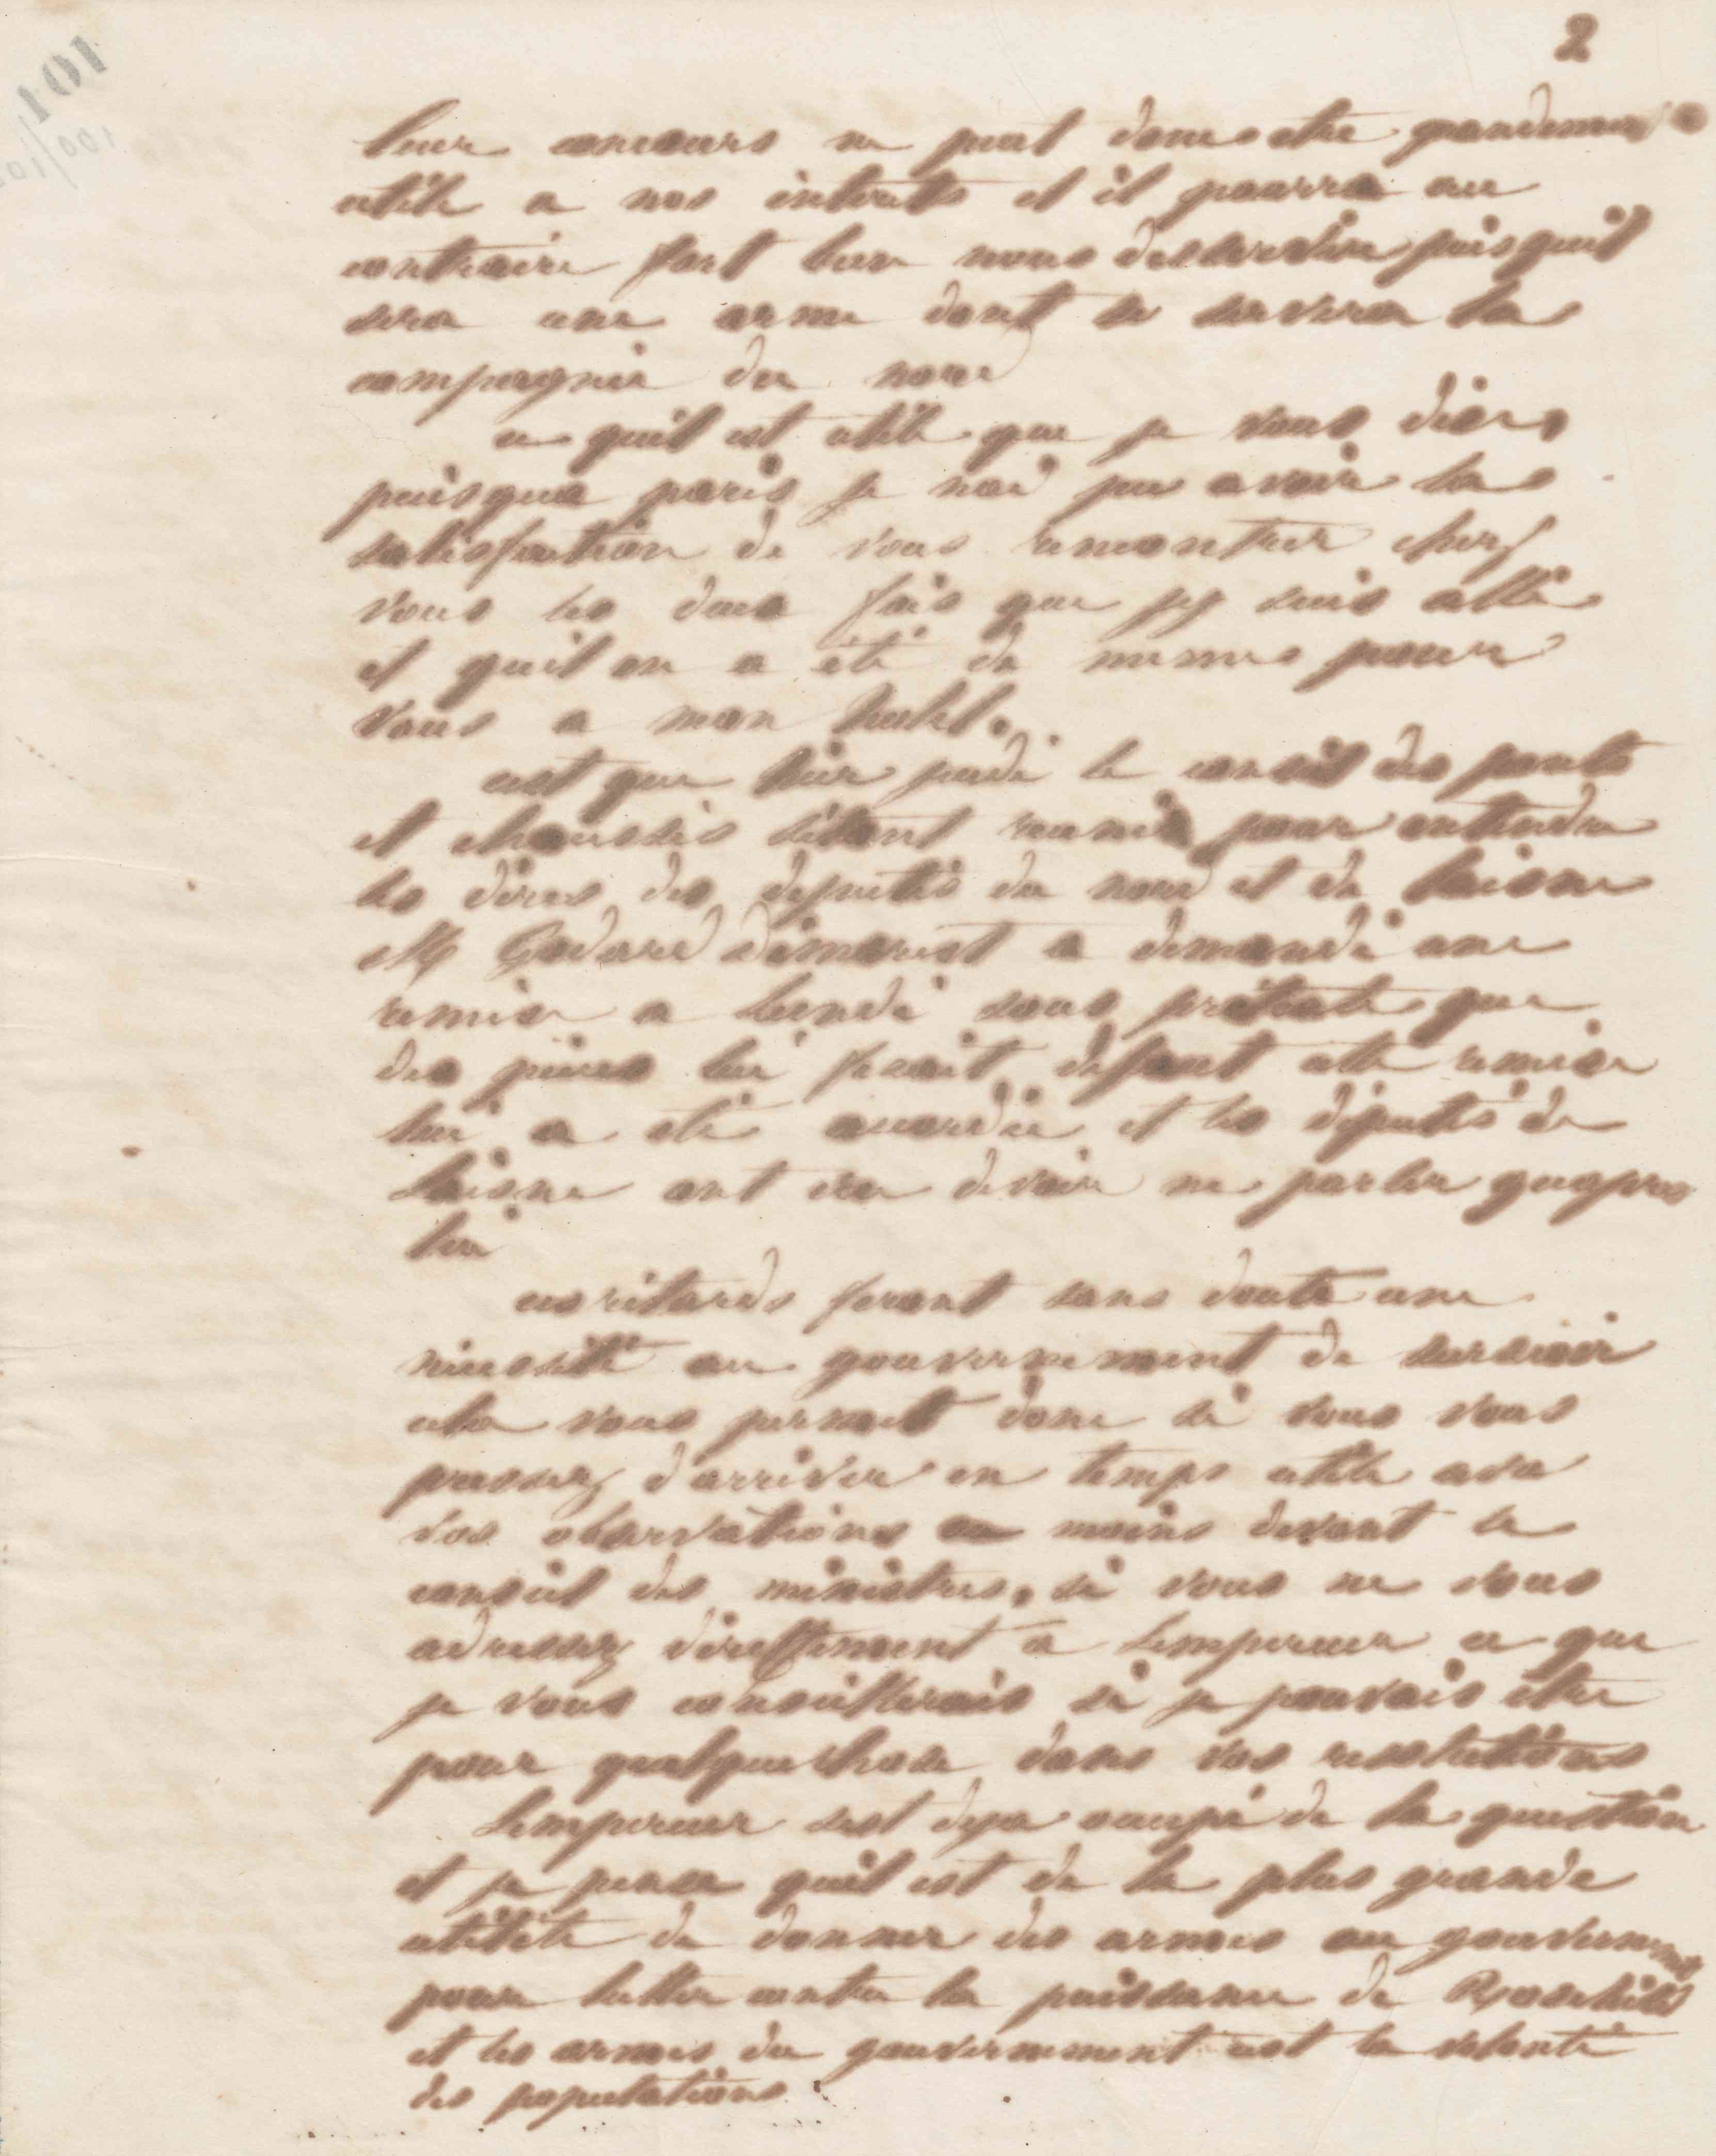 2
101
leur concours ne peut donc etre grandement
utile a nos interets et il pourra au
contraire fort bien nous desservir puisquil
sera une arme dont se servira la
compagnie du nord
ce quil est utile que je vous dise
puisqua paris je nai pu avoir la
satisfaction de vous rencontrer chez
vous les deux fois que jy suis allé
et quil en a été de meme pour
vous a mon hotel.
cest que hier jeudi le conseil des ponts
et chaussées sétant reuni pour entendre
les dires des deputés du nord et de laisne
Mr Godard démarest a demandé une
remise a lundi sous prétexte que
des pieces lui fesait défaut cette remise
lui a été accordée et les députés de
laisne ont cru devoir ne parler quapres
lui
ces retards feront sans doute une
nécessité au gouvernement de surseoir
cela vous permet donc si vous vous
pressez d'arriver en temps utile avec
vos observations au moins devant le
conseil des ministres, si vous ne vous
adressez directement a lempereur ce que
je vous conseillerais si je pouvais etre
pour quelquechose dans vos resolutions
Lempereur sest deja occupé de la question
et je pense quil est de la plus grande
utilité de donner des armes au gouvernement
pour lutter contre la puissance de Roschild
et les armes du gouvernement cest la volonté
des populations